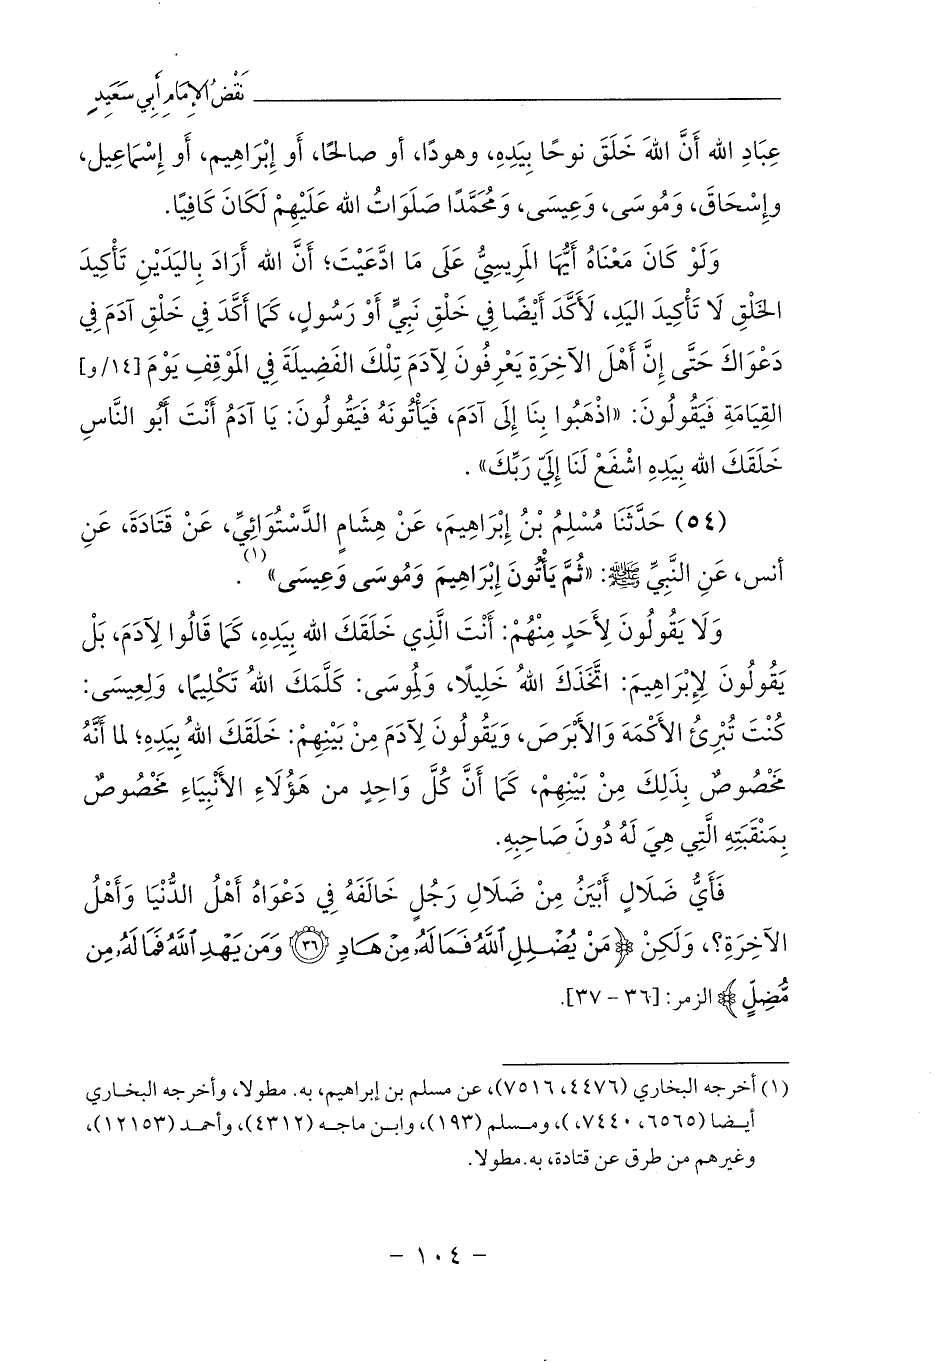 نَقْضُ الإِمَامِ أَبِي سَعِيدٍ
عِبَادِ الله أَنَّ اللهَ خَلَقَ نوحًا بِيَدِهِ، وهودًا، أو صالحًا، أَو إِبْرَاهِيم، أَو إِسْمَاعِيل،
وإِسْحَاقَ، وَمُوسَى، وَعِيسَى، وَمُحَمَّدًا صَلَوَاتُ الله عَلَيْهِمْ لَكَانَ كَافِيًا.
وَلَوْ كَانَ مَعْنَاهُ أَيُّهَا المَرِيسِيُّ عَلَى مَا ادَّعَيْتَ؛ أَنَّ الله أَرَادَ بِاليَدَيْنِ تَأْكِيدَ
الخَلْقِ لَا تَأْكِيدَ اليَدِ، لَأَكَّدَ أَيْضًا فِي خَلْقِ نَبِيٍّ أَوْ رَسُولٍ، كَمَا أَكَّدَ فِي خَلْقِ آدَمَ فِي
دَعْوَاكَ حَتَّى إِنَّ أَهْلَ الآخِرَةِ يَعْرِفُونَ لِآدَمَ تِلْكَ الفَضِيلَةَ فِي المَوْقِفِ يَوْمَ [١٤/و]
القِيَامَةِ فَيَقُولُونَ: «اذْهَبُوا بِنَا إِلَى آدَمَ، فَيَأْتُونَهُ فَيَقُولُونَ: يَا آدَمُ أَنْتَ أَبُو النَّاسِ
خَلَقَكَ الله بِيَدِهِ اشْفَعْ لَنَا إِلَيّ رَبِّكَ» .
(٥٤) حَدَّثَنَا مُسْلِمُ بْنُ إِبْرَاهِيمَ، عَنْ هِشَامٍ الدَّسْتُوَائِيِّ، عَنْ قَتَادَةَ، عَنِ
أنس، عَنِ النَّبِيِّ ﷺ: «ثُمَّ يَأْتُونَ إِبْرَاهِيمَ وَمُوسَى وَعِيسَى»(١) .
وَلَا يَقُولُونَ لِأَحَدٍ مِنْهُمْ: أَنْتَ الَّذِي خَلَقَكَ الله بِيَدِهِ، كَمَا قَالُوا لِآدَمَ، بَلْ
يَقُولُونَ لِإِبْرَاهِيمَ: اتَّخَذَكَ اللهُ خَلِيلًا، وَلِمُوسَى: كَلَّمَكَ اللهُ تَكْلِيمًا، وَلِعِيسَى:
كُنْتَ تُبْرِئُ الأَكْمَهَ وَالأَبْرَصَ، وَيَقُولُونَ لِآدَمَ مِنْ بَيْنِهِمْ: خَلَقَكَ اللهُ بِيَدِهِ؛ لما أَنَّهُ
مَخْصُوصٌ بِذَلِكَ مِنْ بَيْنِهِمْ، كَمَا أَنَّ كُلَّ وَاحِدٍ من هَؤُلَاءِ الأَنْبِيَاءِ مَخْصُوصٌ
بِمَنْقَبَتِهِ الَّتِي هِيَ لَهُ دُونَ صَاحِبِهِ.
فَأَيُّ ضَلَالٍ أَبْيَنُ مِنْ ضَلَالِ رَجُلٍ خَالَفَهُ فِي دَعْوَاهُ أَهْلُ الدُّنْيَا وَأَهْلُ
الآخِرَةِ؟، وَلَكِنْ ﴿مَنْ يُضْلِلِ ٱللَّهُ فَمَا لَهُۥ مِنْ هَادٍ ٣٦ وَمَن يَهْدِ ٱللَّهُ فَمَا لَهُۥ مِن
مُّضِلٍّ﴾ الزمر: [٣٦ - ٣٧].
(١) أخرجه البخاري (٤٤٧٦، ٧٥١٦)، عن مسلم بن إبراهيم، به. مطولا، وأخرجه البخاري
أيضا (٦٥٦٥، ٧٤٤٠، )، ومسلم (١٩٣)، وابن ماجه (٤٣١٢)، وأحمد (١٢١٥٣)،
وغيرهم من طرق عن قتادة، به.مطولا.
- ١٠٤ -